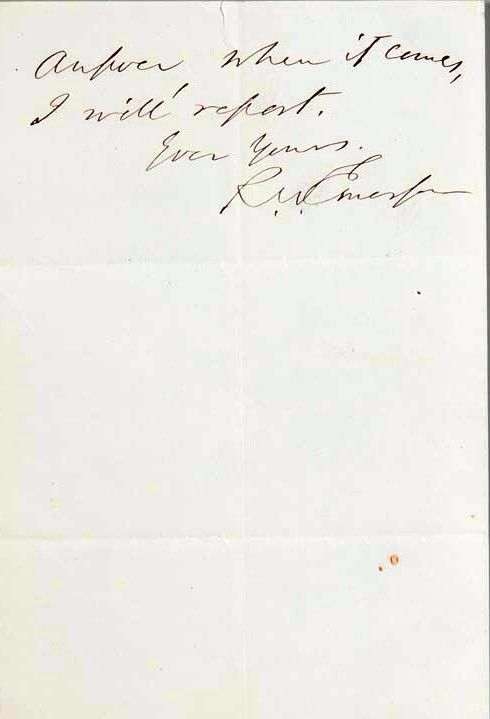 Answer, when it comes,
I will report.
Ever yours.
R. W. Emerson